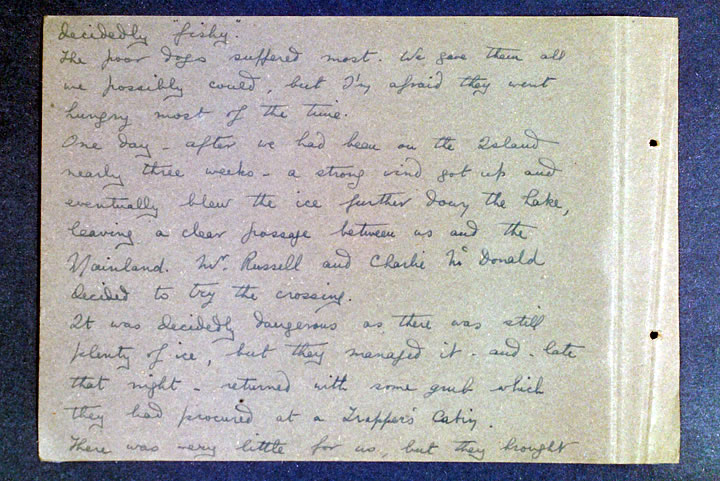 decidedly "fishy."
The poor dogs suffered most. We gave them all
we possibly could, but I'm afraid they went
hungry most of the time.
One day - after we had been on the Island
nearly three weeks - a strong wind got up and
eventually blew the ice further down the Lake,
leaving a clear passage between us and the
Mainland. Mr. Russell and Charlie McDonald
decided to try the crossing.
It was decidedly dangerous as there was still
plenty of ice, but they managed it - and - late
that night - returned with some grub which
they had procured at a Trapper's Cabin.
There was very little for us, but they brought